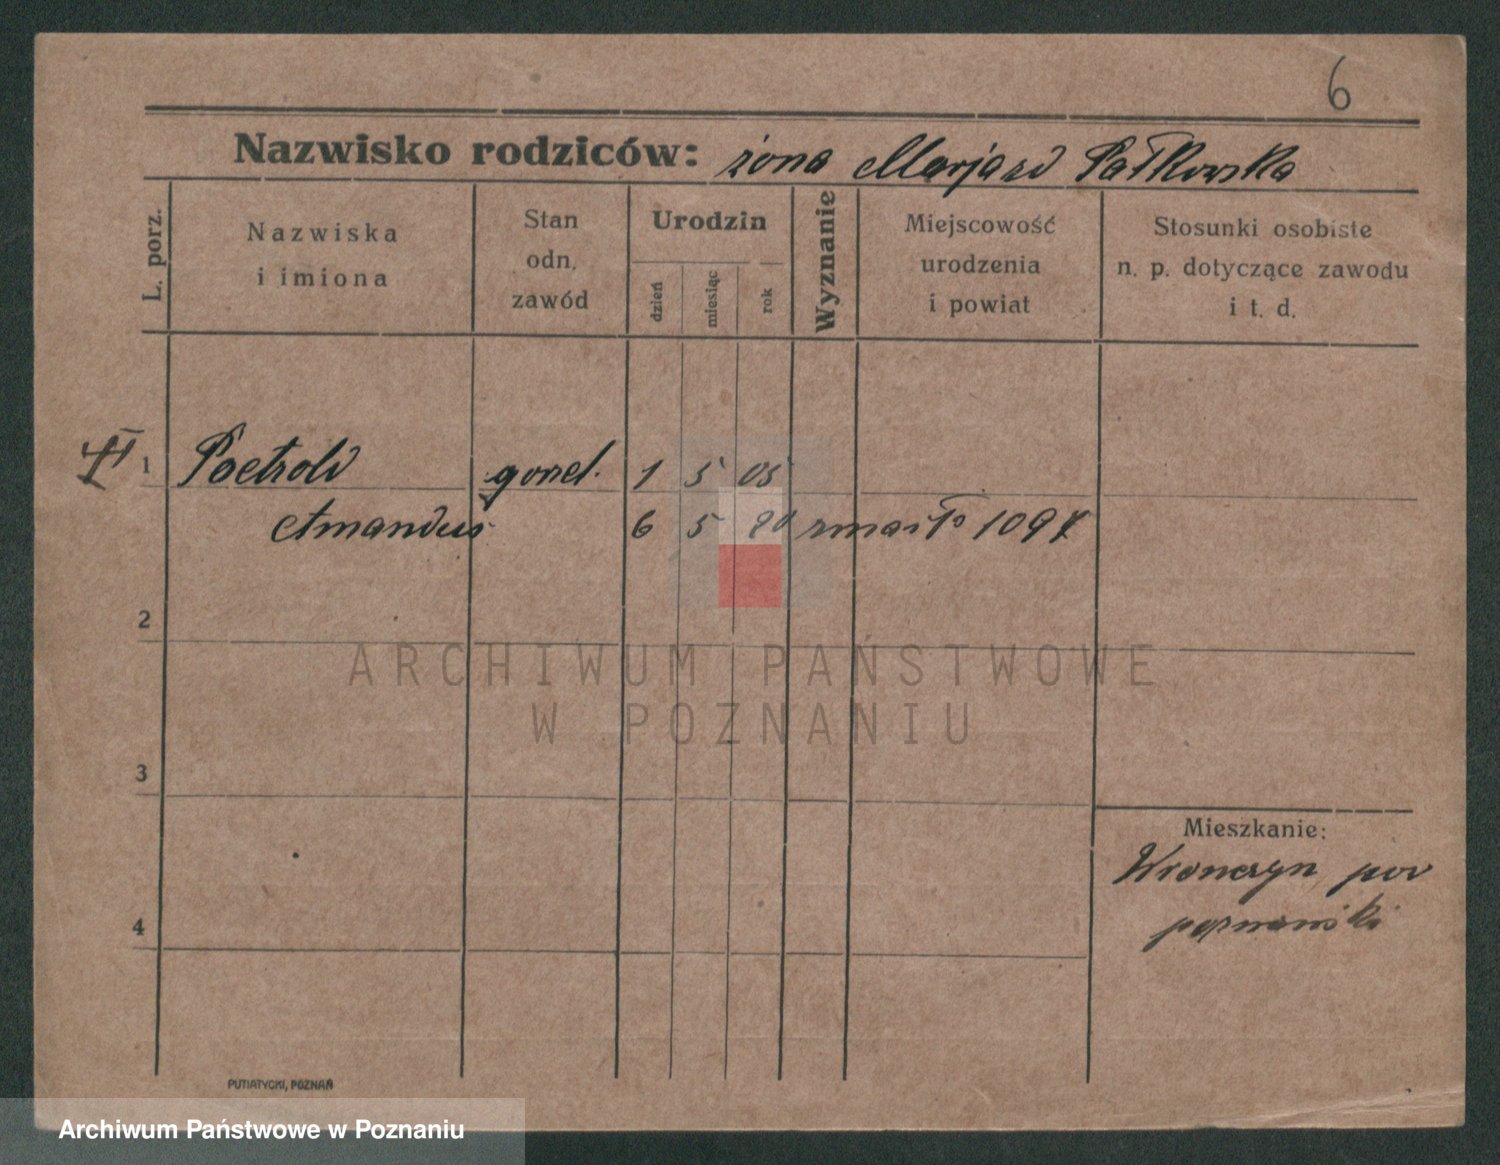 6
Nazwisko rodziców: żona Marja zd Pałkowska
L. porz.
Nazwiska
i imiona
Stan
odn.
zawód
Urodzin
dzień
miesiąc
rok
Wyznanie
Miejscowość
urodzenia
i powiat
Stosunki osobiste
n. p. dotyczące zawodu
i t. d.
1 Poetzold 1 5 05
Amandus 6 5 zmarł
2
ARCHIWUM PAŃSTWOWE
W POZNANIU
3
Mieszkanie:
Wronczyn, pow
poznański
4
PUTIATYCKI, POZNAŃ
Archiwum Państwowe w Poznaniu